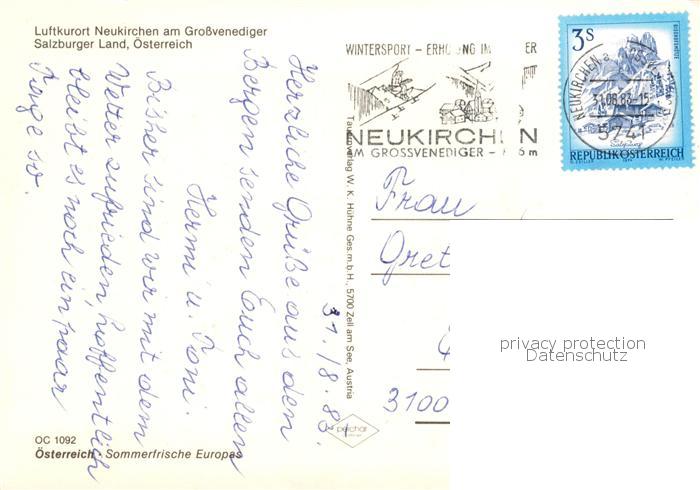 Luftkurort Neukirchen am Großvenediger
Salzburger Land, Österreich
Herzliche Grüße aus den
Bergen senden Euch allen
Hermi u. Toni.
Bisher sind wir mit dem
Wetter zufrieden, hoffentlich
bleibt es noch ein paar
Tage so.
31./8.83.
OC 1092
Österreich · Sommerfrische Europas
Tauernverlag W. K. Hühne Ges.m.b.H., 5700 Zell am See, Austria
WINTERSPORT - ERHOLUNG IM
NEUKIRCHEN
AM GROSSVENEDIGER -
3S
NEUKIRCHEN a.
31.08.83-15
5741
REPUBLIK ÖSTERREICH
Frau
Gret
3100
privacy protection
Datenschutz